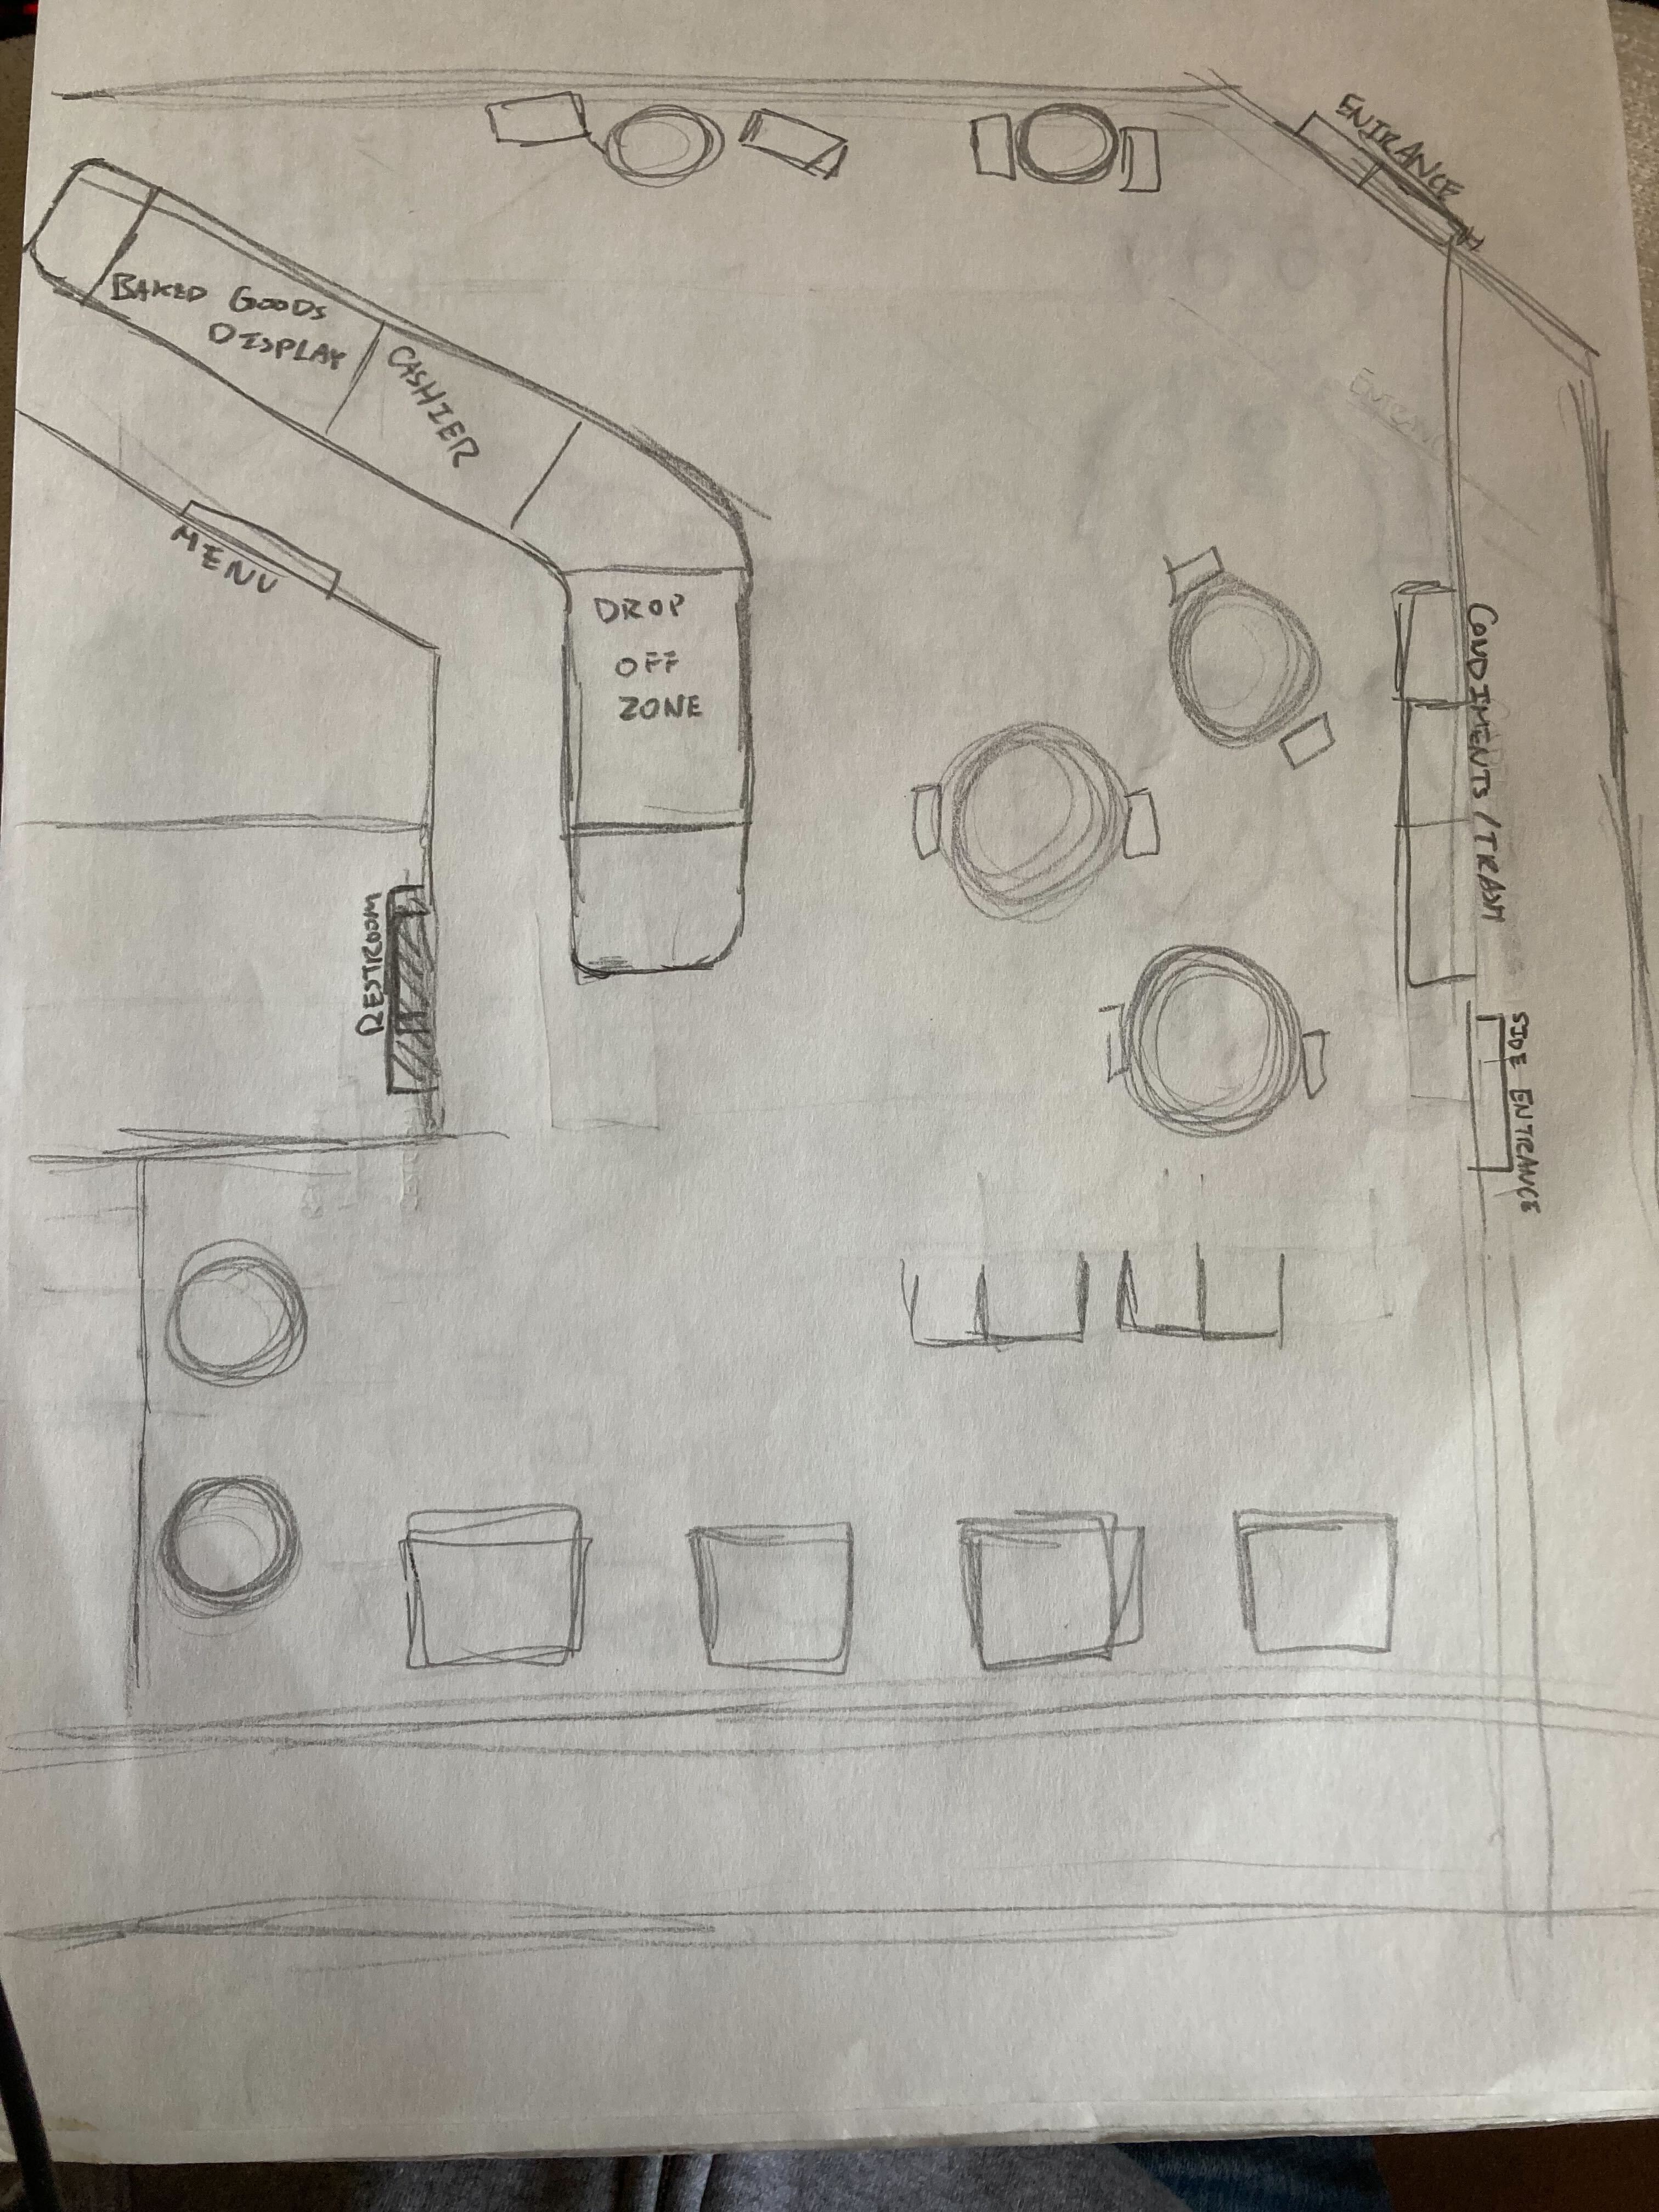 ENTRANCE
BAKED GOODS
DISPLAY
CASHIER
ENTRANCE
MENU
DROP
OFF
ZONE
CONDIMENTS / TRASH
RESTROOM
SIDE ENTRANCE